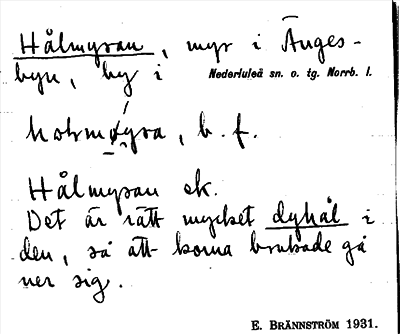 Hålmyran, myr i Änges-
byn, by i Nederluleå sn. o. tg. Norrb. l.
b. f.
Hålmyran ek.
Det är rätt mycket dyhål i
den, så att korna brukade gå
ner sig.
E. BRÄNNSTRÖM 1931.